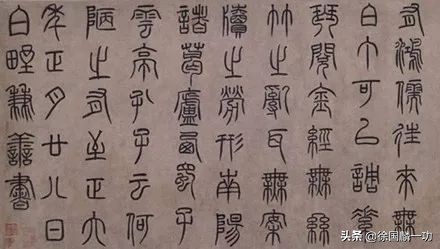 有鴻儒往來無
白丁可以調素
琴閱金經無絲
竹之亂耳無案
牘之勞形南陽
諸葛廬西蜀子
雲亭孔子云何
陋之有至正六
年正月廿八日
白野兼善書
头条 @徐国麟一功